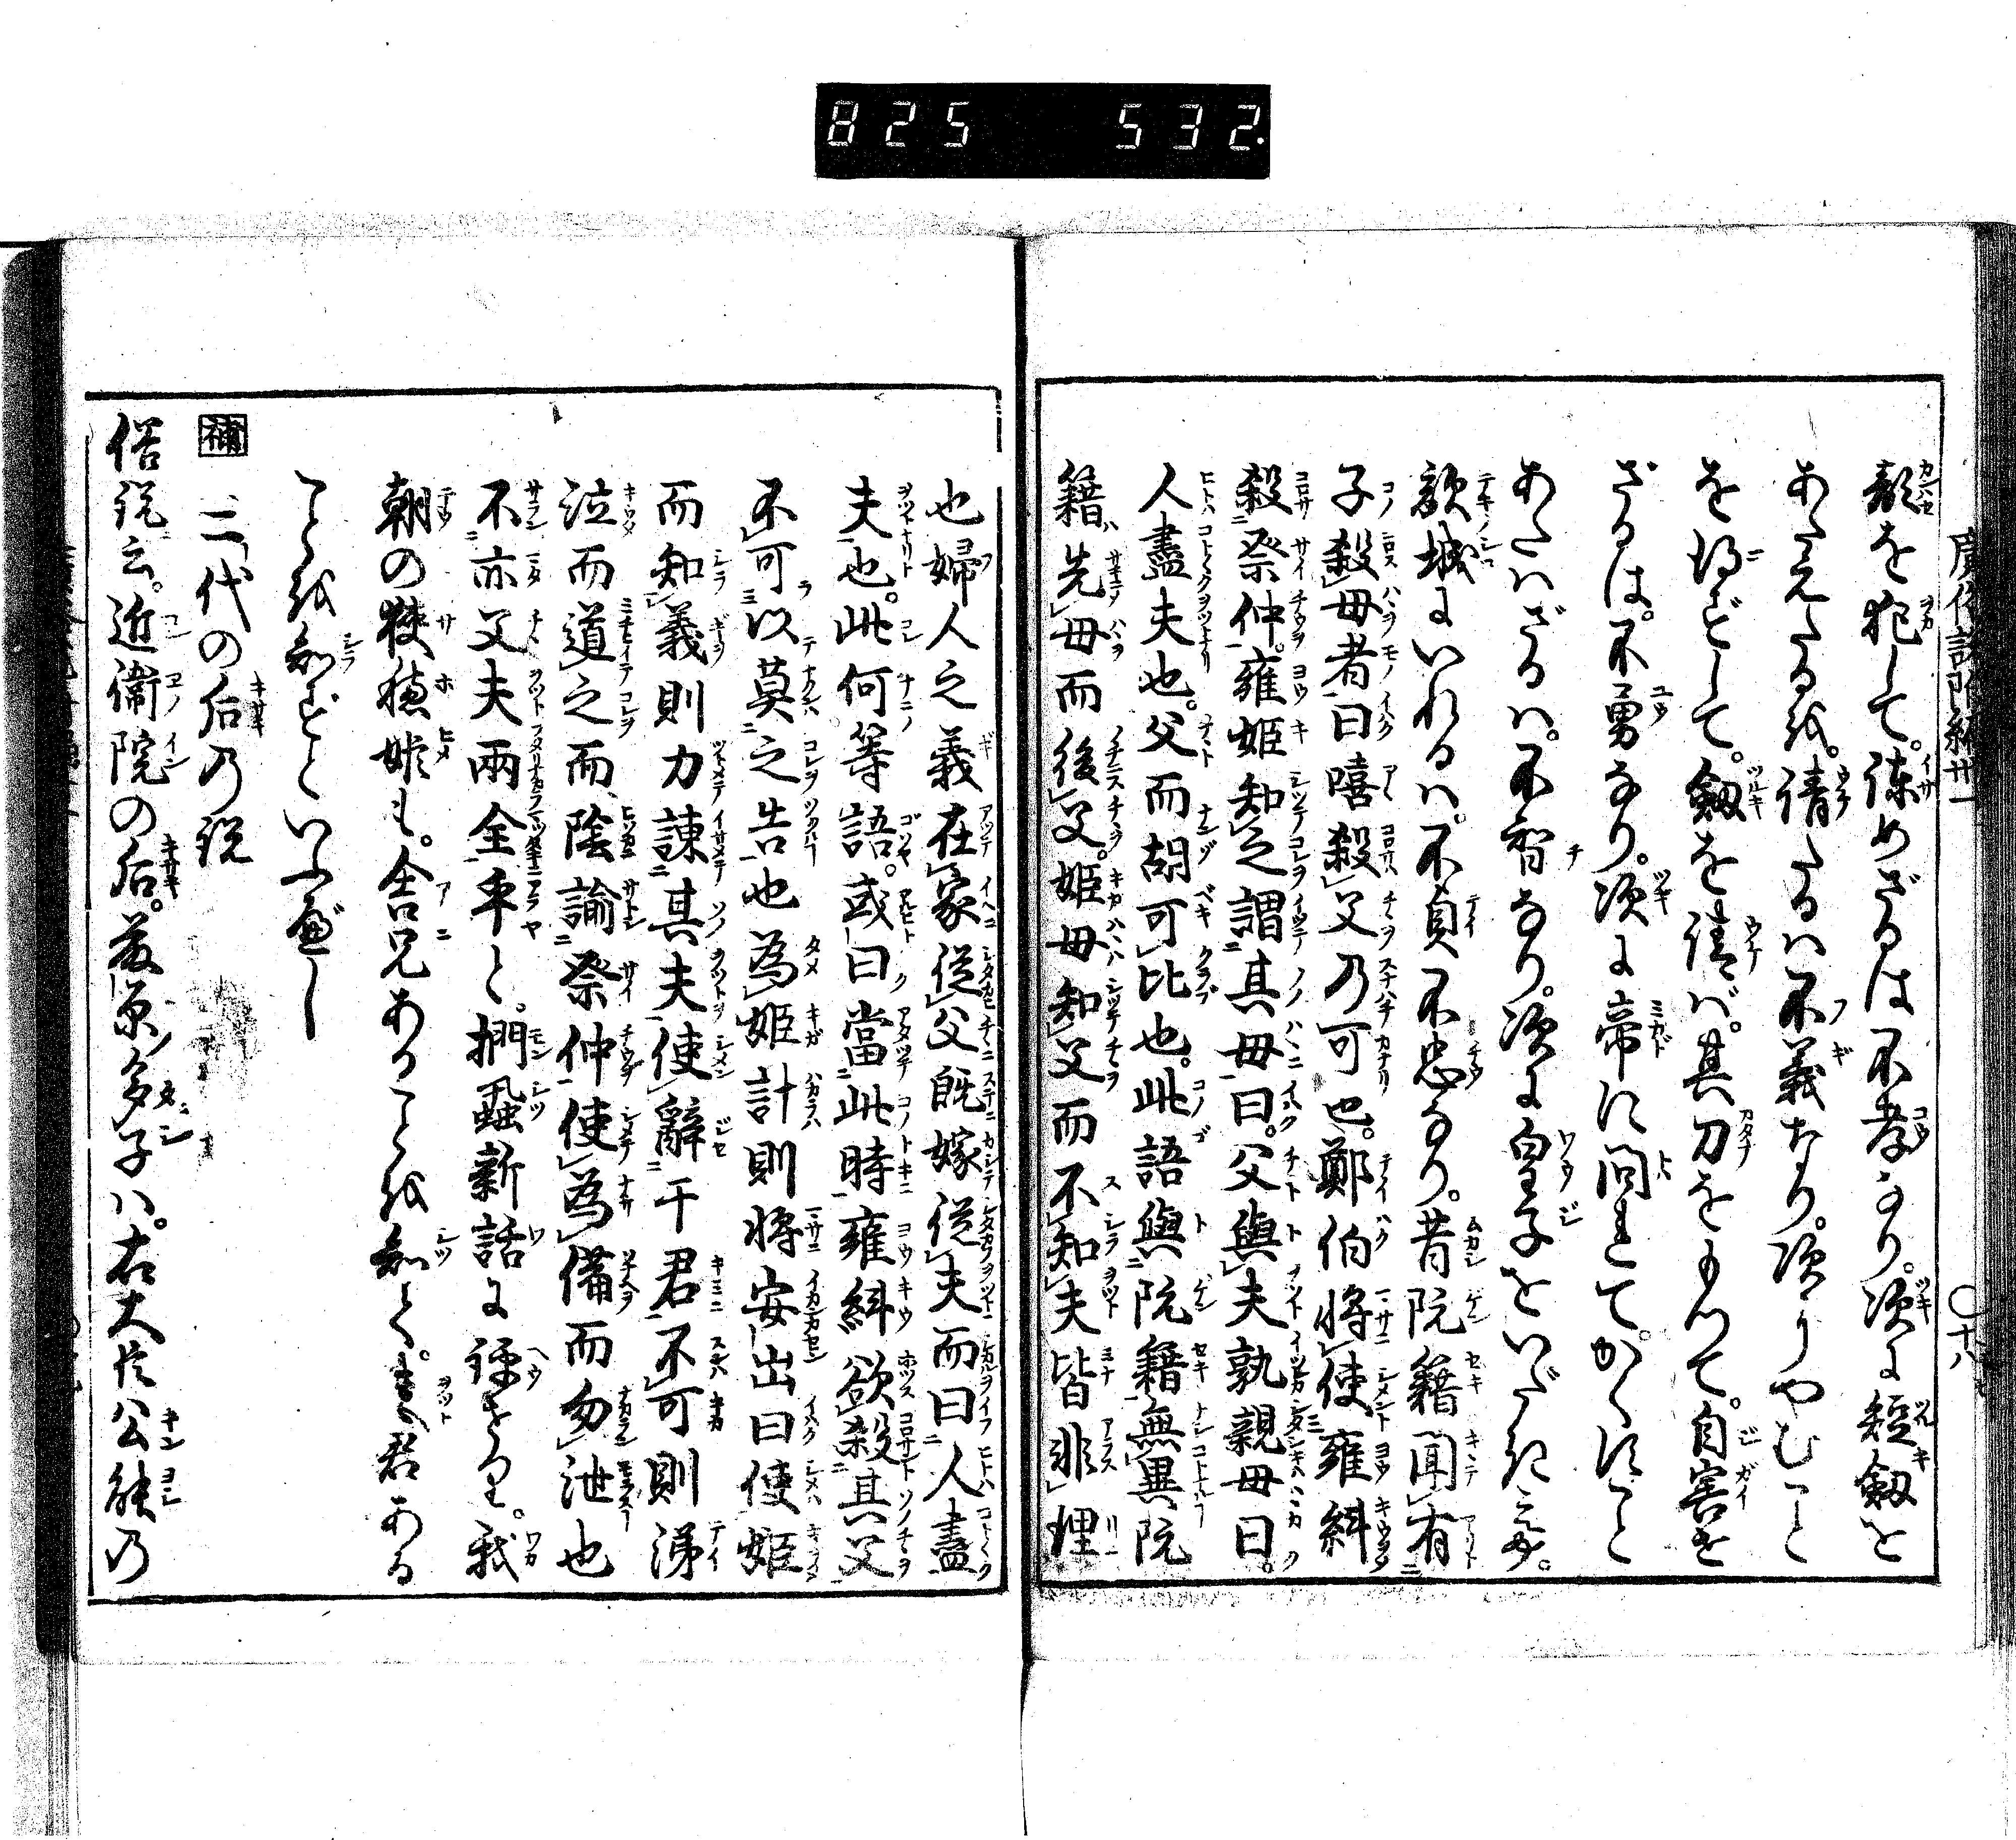 825 532.
顔を犯して。諌めざるは不孝なり。次に短劔を
あたえたるを。請たるハ不義なり。次にやむこと
を得ずして。劔を請ば。其刀をもつて。自害せ
ざるは。不勇なり。次に帝に問れて。かくすこと
あたハざるハ。不智なり。次に皇子をいだきて。
敵城にいれるハ。不貞不忠なり。昔阮籍聞有
子殺母者曰嘻殺父乃可也。鄭伯將使雍糾
殺祭仲。雍姫知之謂其母曰。父與夫孰親母曰。
人盡夫也。父而胡可比也。此語與阮籍無異阮
籍先母而後父。姫母知父而不知夫皆非理
也婦人之義在家從父既嫁從夫而曰人盡
夫也。此何等語。或曰當此時雍糾欲殺其父
不可以莫之告也為姫計則將安出曰使姫
而知義則力諌其夫使辭于君不可則涕
泣而道之而陰諭祭仲使為備而勿泄也
不亦父夫兩全乎と。捫蝨新話に評せり。我
朝の狹穂姫も。舎兄あることを知て。夫君ある
ことを知ずといふべし
補 二代の后乃説
俗説云。近衞院の后。藤原多子ハ。右大臣公能乃